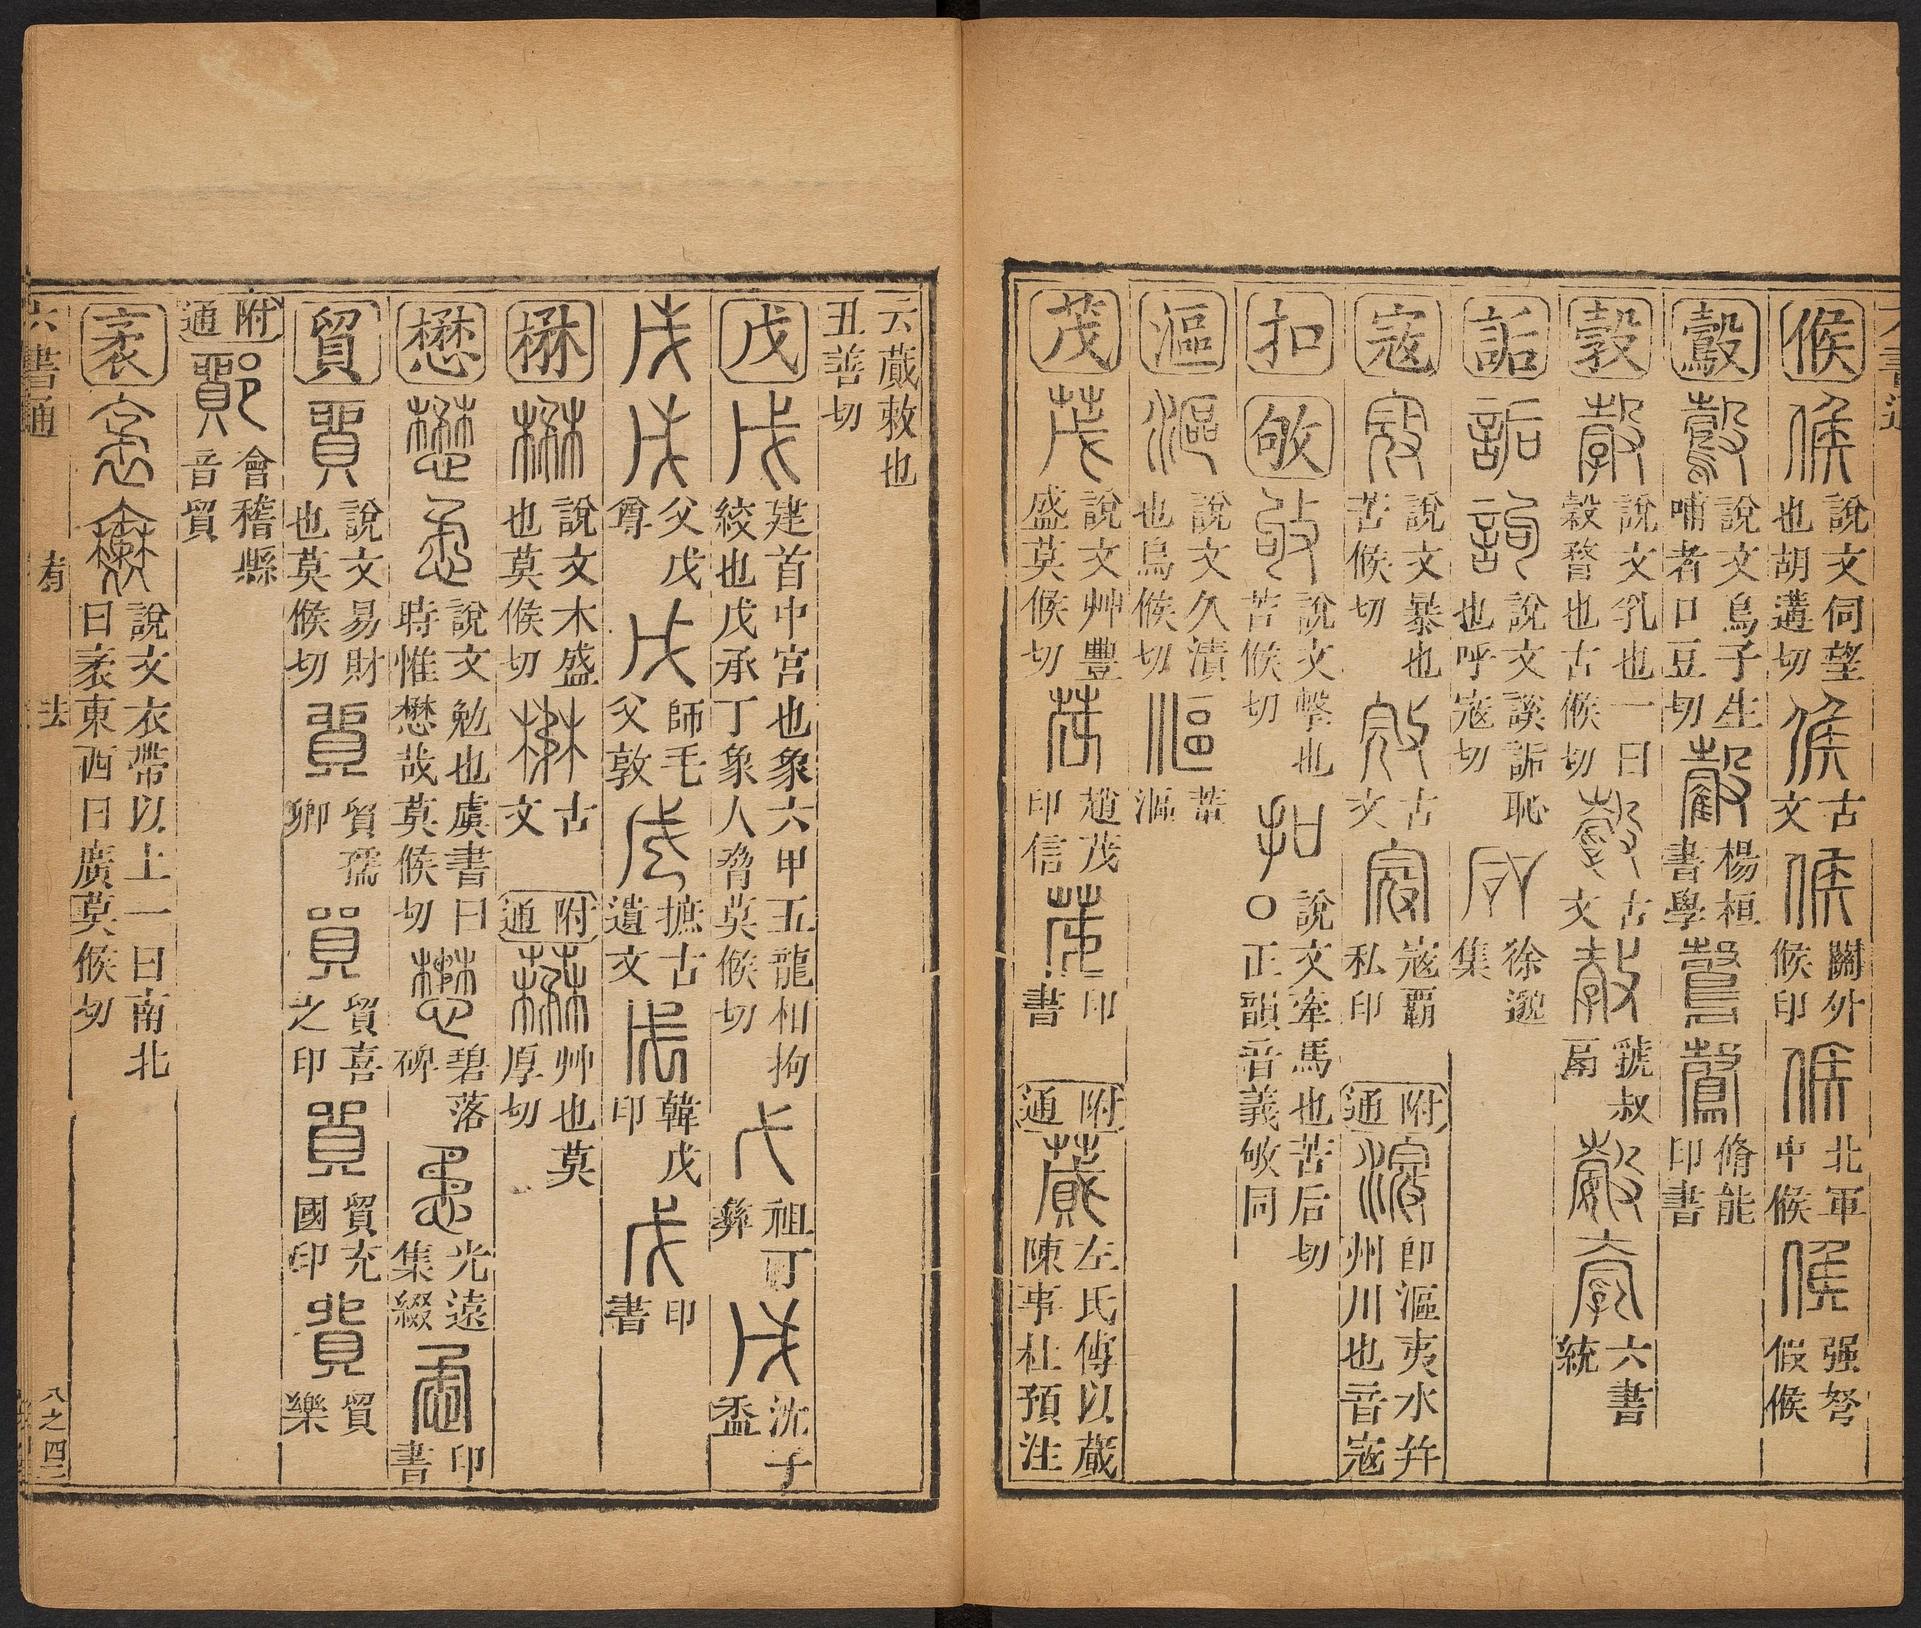 候 說文伺望也胡遘切 古文 關外候印 北軍中候 强弩假候
鷇 說文鳥子生哺者口豆切 楊桓書學 脩能印書
㝅 說文乳也一曰㝅瞀也古候切 古文 虢叔鬲 六書統
詬 說文謑詬恥也呼寇切 徐邈集
寇 說文暴也苦候切 古文 寇霸私印 附通 即漚夷水幷州川也音寇
扣 敂 說文擊也苦候切 說文牽馬也苦后切○正韻音義敂同
漚 說文久漬也烏候切 漚
茂 說文艸豐盛莫候切 趙茂印信 印書 附通 蕆 左氏傳以蕆陳事杜預注
云蕆敕也丑善切
戊 建首中宮也象六甲五龍相拘絞也戊承丁象人脅莫候切 祖丁彝 沈子盉
父戊尊 師毛父敦 摭古遺文 韓戊印 印書
楙 說文木盛也莫候切 古文 附通 艸也莫厚切
懋 說文勉也虞書曰時惟懋哉莫候切 碧落碑 光遠集綴 印書
貿 說文易財也莫候切 貿孺卿 貿喜之印 貿充國印 貿樂
附通 鄮 會稽縣音貿
袤 說文衣帶以上一曰南北曰袤東西曰廣莫候切
六書通 去 八之四二